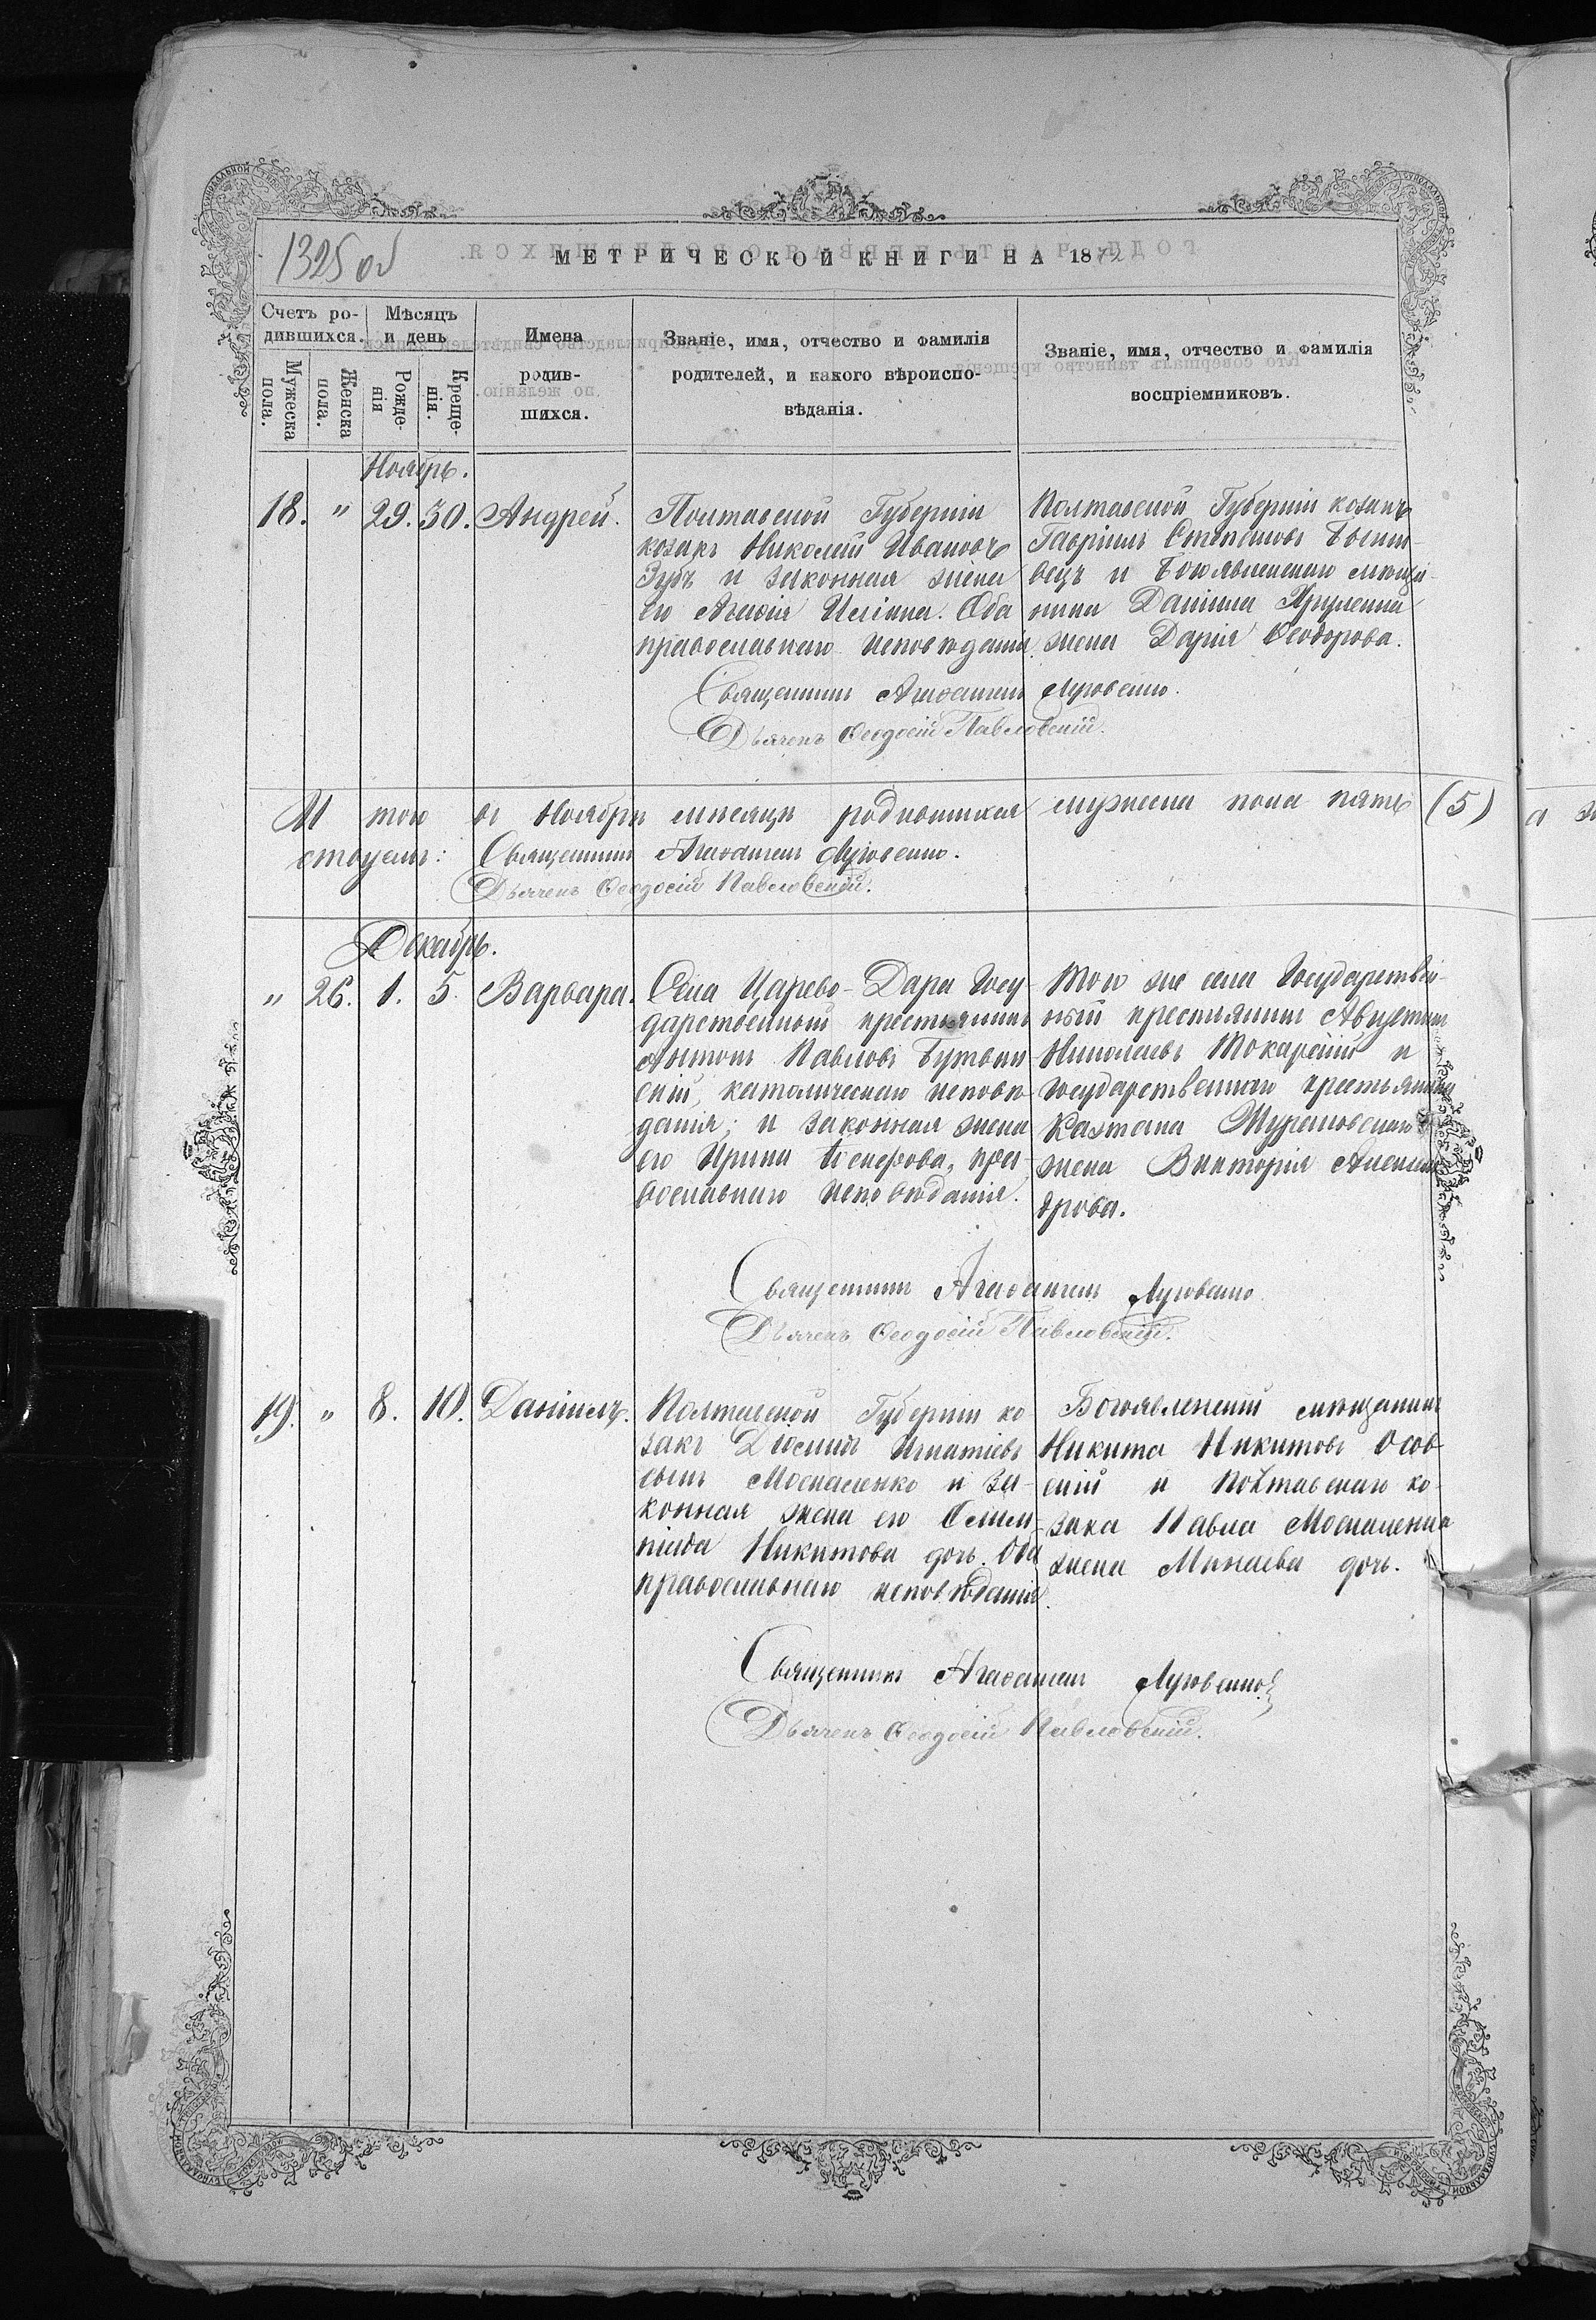 1325 об
МЕТРИЧЕСКОЙ КНИГИ НА 1872
Счетъ родившихся.
Мѣсяцъ и день
Имена родившихся.
Званіе, имя, отчество и фамилія родителей, и какого вѣроисповѣданія.
Званіе, имя, отчество и фамилія воспріемниковъ.
Мужеска пола.
Женска пола.
Рожденія
Крещенія.
Ноябрь.
18. " 29. 30. Андрей.
Полтавской Губерніи
козакъ Николай Ивановъ
Зубъ и законная жена
его Агафія Ильина. Оба
православнаго исповѣданія.
Полтавской Губерніи козакъ
Гавріилъ Степановъ
и Богоявленскаго мѣща-
нина Даніила
жена Дарія Ѳеодорова.
Священникъ Агаѳангелъ Луговенко.
Дьячекъ Ѳеодосій Павловскій.
И того въ Ноябрѣ мѣсяцѣ родившихся мужеска пола пять (5)
Священникъ Агаѳангелъ Луговенко.
Дьячекъ Ѳеодосій Павловскій.
Декабрь.
" 26. 1. 5. Варвара.
Села Царево-Дара Госу-
дарственный крестьянинъ
Антонъ Павловъ
католическаго исповѣ-
данія; и законная жена
его Ирина Іосифова, пра-
вославнаго исповѣданія.
Того же села Государствен-
ный крестьянинъ Августинъ
Николаевъ Токарскій и
Государственнаго крестьянина
Казтана
жена Викторія Алексан-
дрова.
Священникъ Агаѳангелъ Луговенко
Дьячекъ Ѳеодосій Павловскій.
19. " 8. 10. Даніилъ.
Полтавской Губерніи ко
закъ Игнатіевъ
сынъ Москаленко и за-
конная жена его Олим-
піада Никитова дочь. Оба
православнаго исповѣданія.
Богоявленскій мѣщанинъ
Никита Никитовъ Осов-
скій и Полтавскаго ко-
зака Павла Москаленка
жена Минаева дочь.
Священникъ Агаѳангелъ Луговенко
Дьячекъ Ѳеодосій Павловскій.